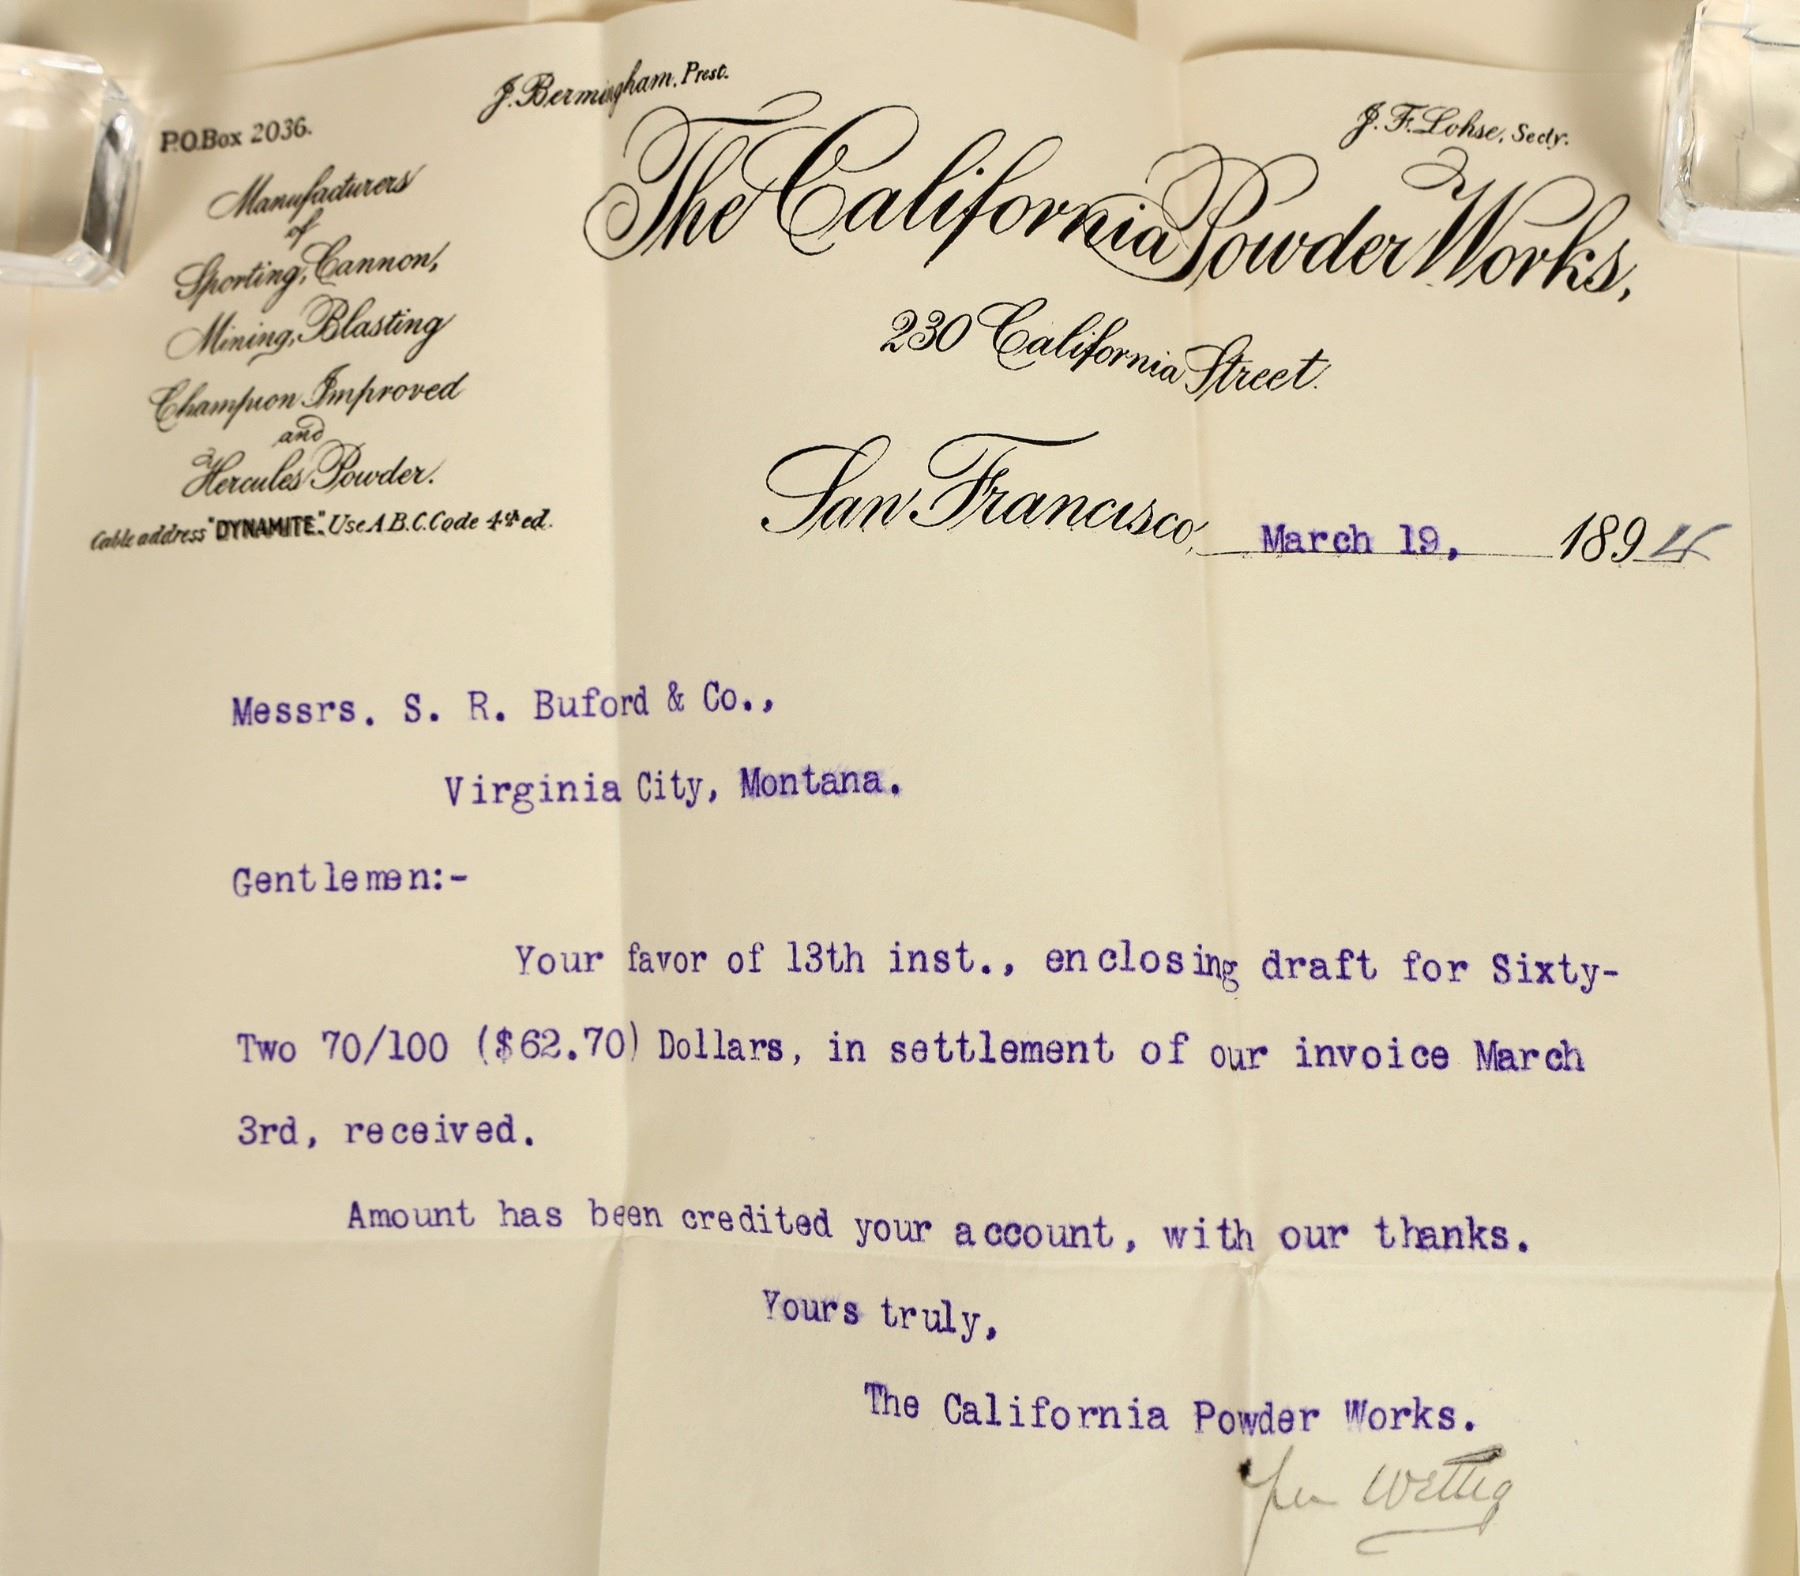 J. Bermingham, Prest.
J. F. Lohse, Secty.
P.O.Box 2036.
The California Powder Works,
Manufacturers
of
Sporting, Cannon,
Mining, Blasting
Champion Improved
and
Hercules Powder.
Cable address "DYNAMITE." Use A.B.C. Code 4th ed.
230 California Street.
San Francisco, March 19, 1894
Messrs. S. R. Buford & Co.,
Virginia City, Montana.
Gentlemen:-
Your favor of 13th inst., enclosing draft for Sixty-
Two 70/100 ($62.70) Dollars, in settlement of our invoice March
3rd, received.
Amount has been credited your account, with our thanks.
Yours truly,
The California Powder Works.
per